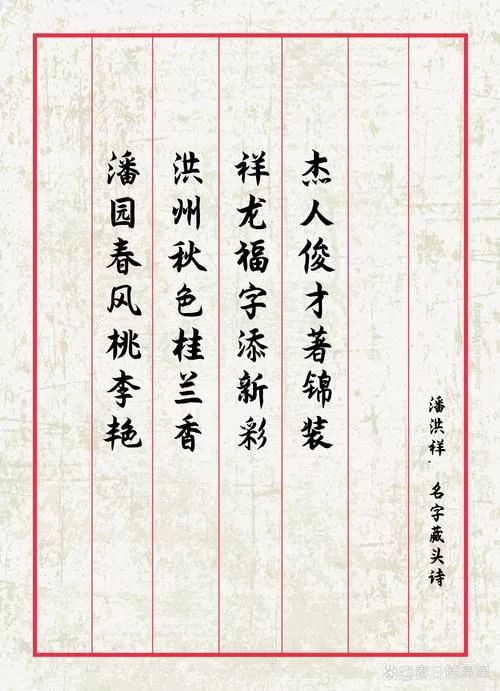 潘园春风桃李艳
洪州秋色桂兰香
祥龙福字添新彩
杰人俊才著锦装
潘洪祥. 名字藏头诗